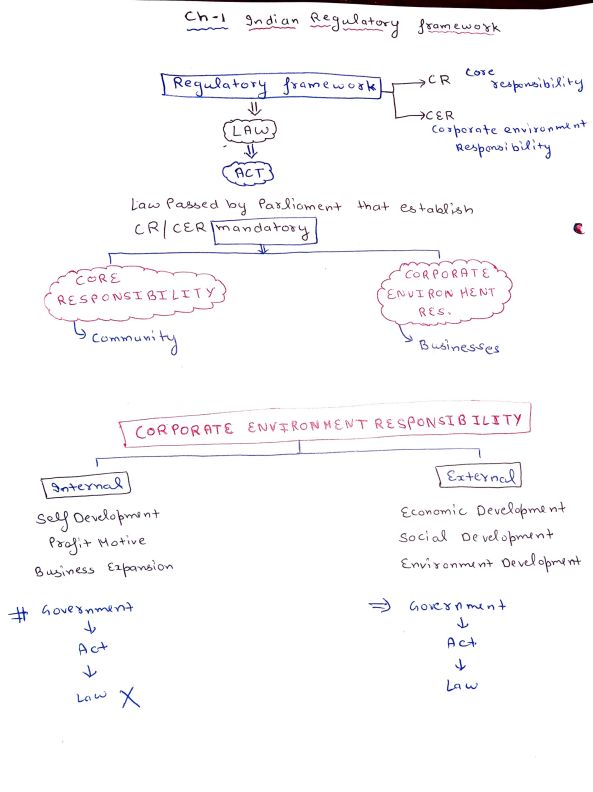 Ch-1 Indian Regulatory framework
Regulatory framework
CR Core responsibility
CER
Corporate environment Responsibility
LAW
ACT
Law Passed by Parliament that establish
CR/CER mandatory
CORE
RESPONSIBILITY
Community
CORPORATE
ENVIRONMENT
RES.
Businesses
CORPORATE ENVIRONMENT RESPONSIBILITY
Internal
Self Development
Profit Motive
Business Expansion
# Government
Act
Law X
External
Economic Development
Social Development
Environment Development
⇒ Government
Act
Law